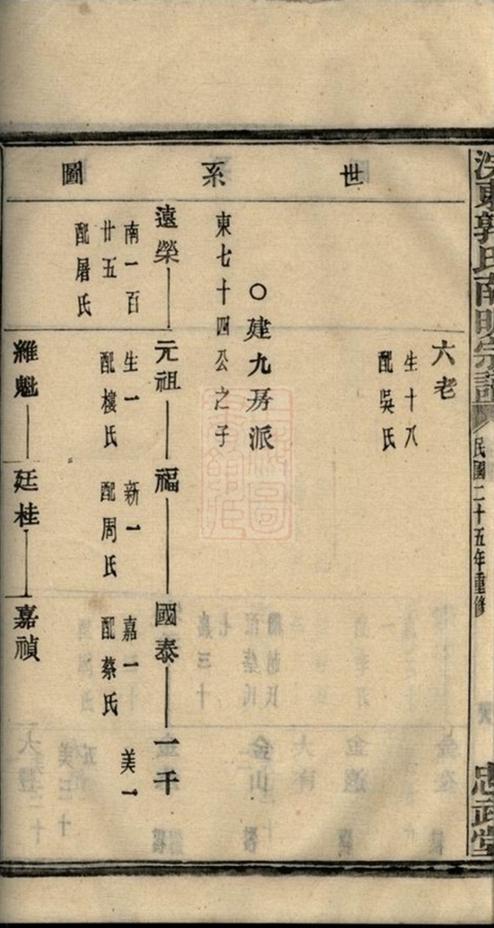 東郭氏南明宗譜
民國二十五年重修
忠武堂
世系圖
六老
生十八
配吳氏
○建九房派
東七十四公之子
遠榮
元祖
福
國泰
一千
南一百
廿五
配屠氏
生一
配樓氏
新一
配周氏
嘉一
配蔡氏
美一
維魁
廷桂
嘉禎